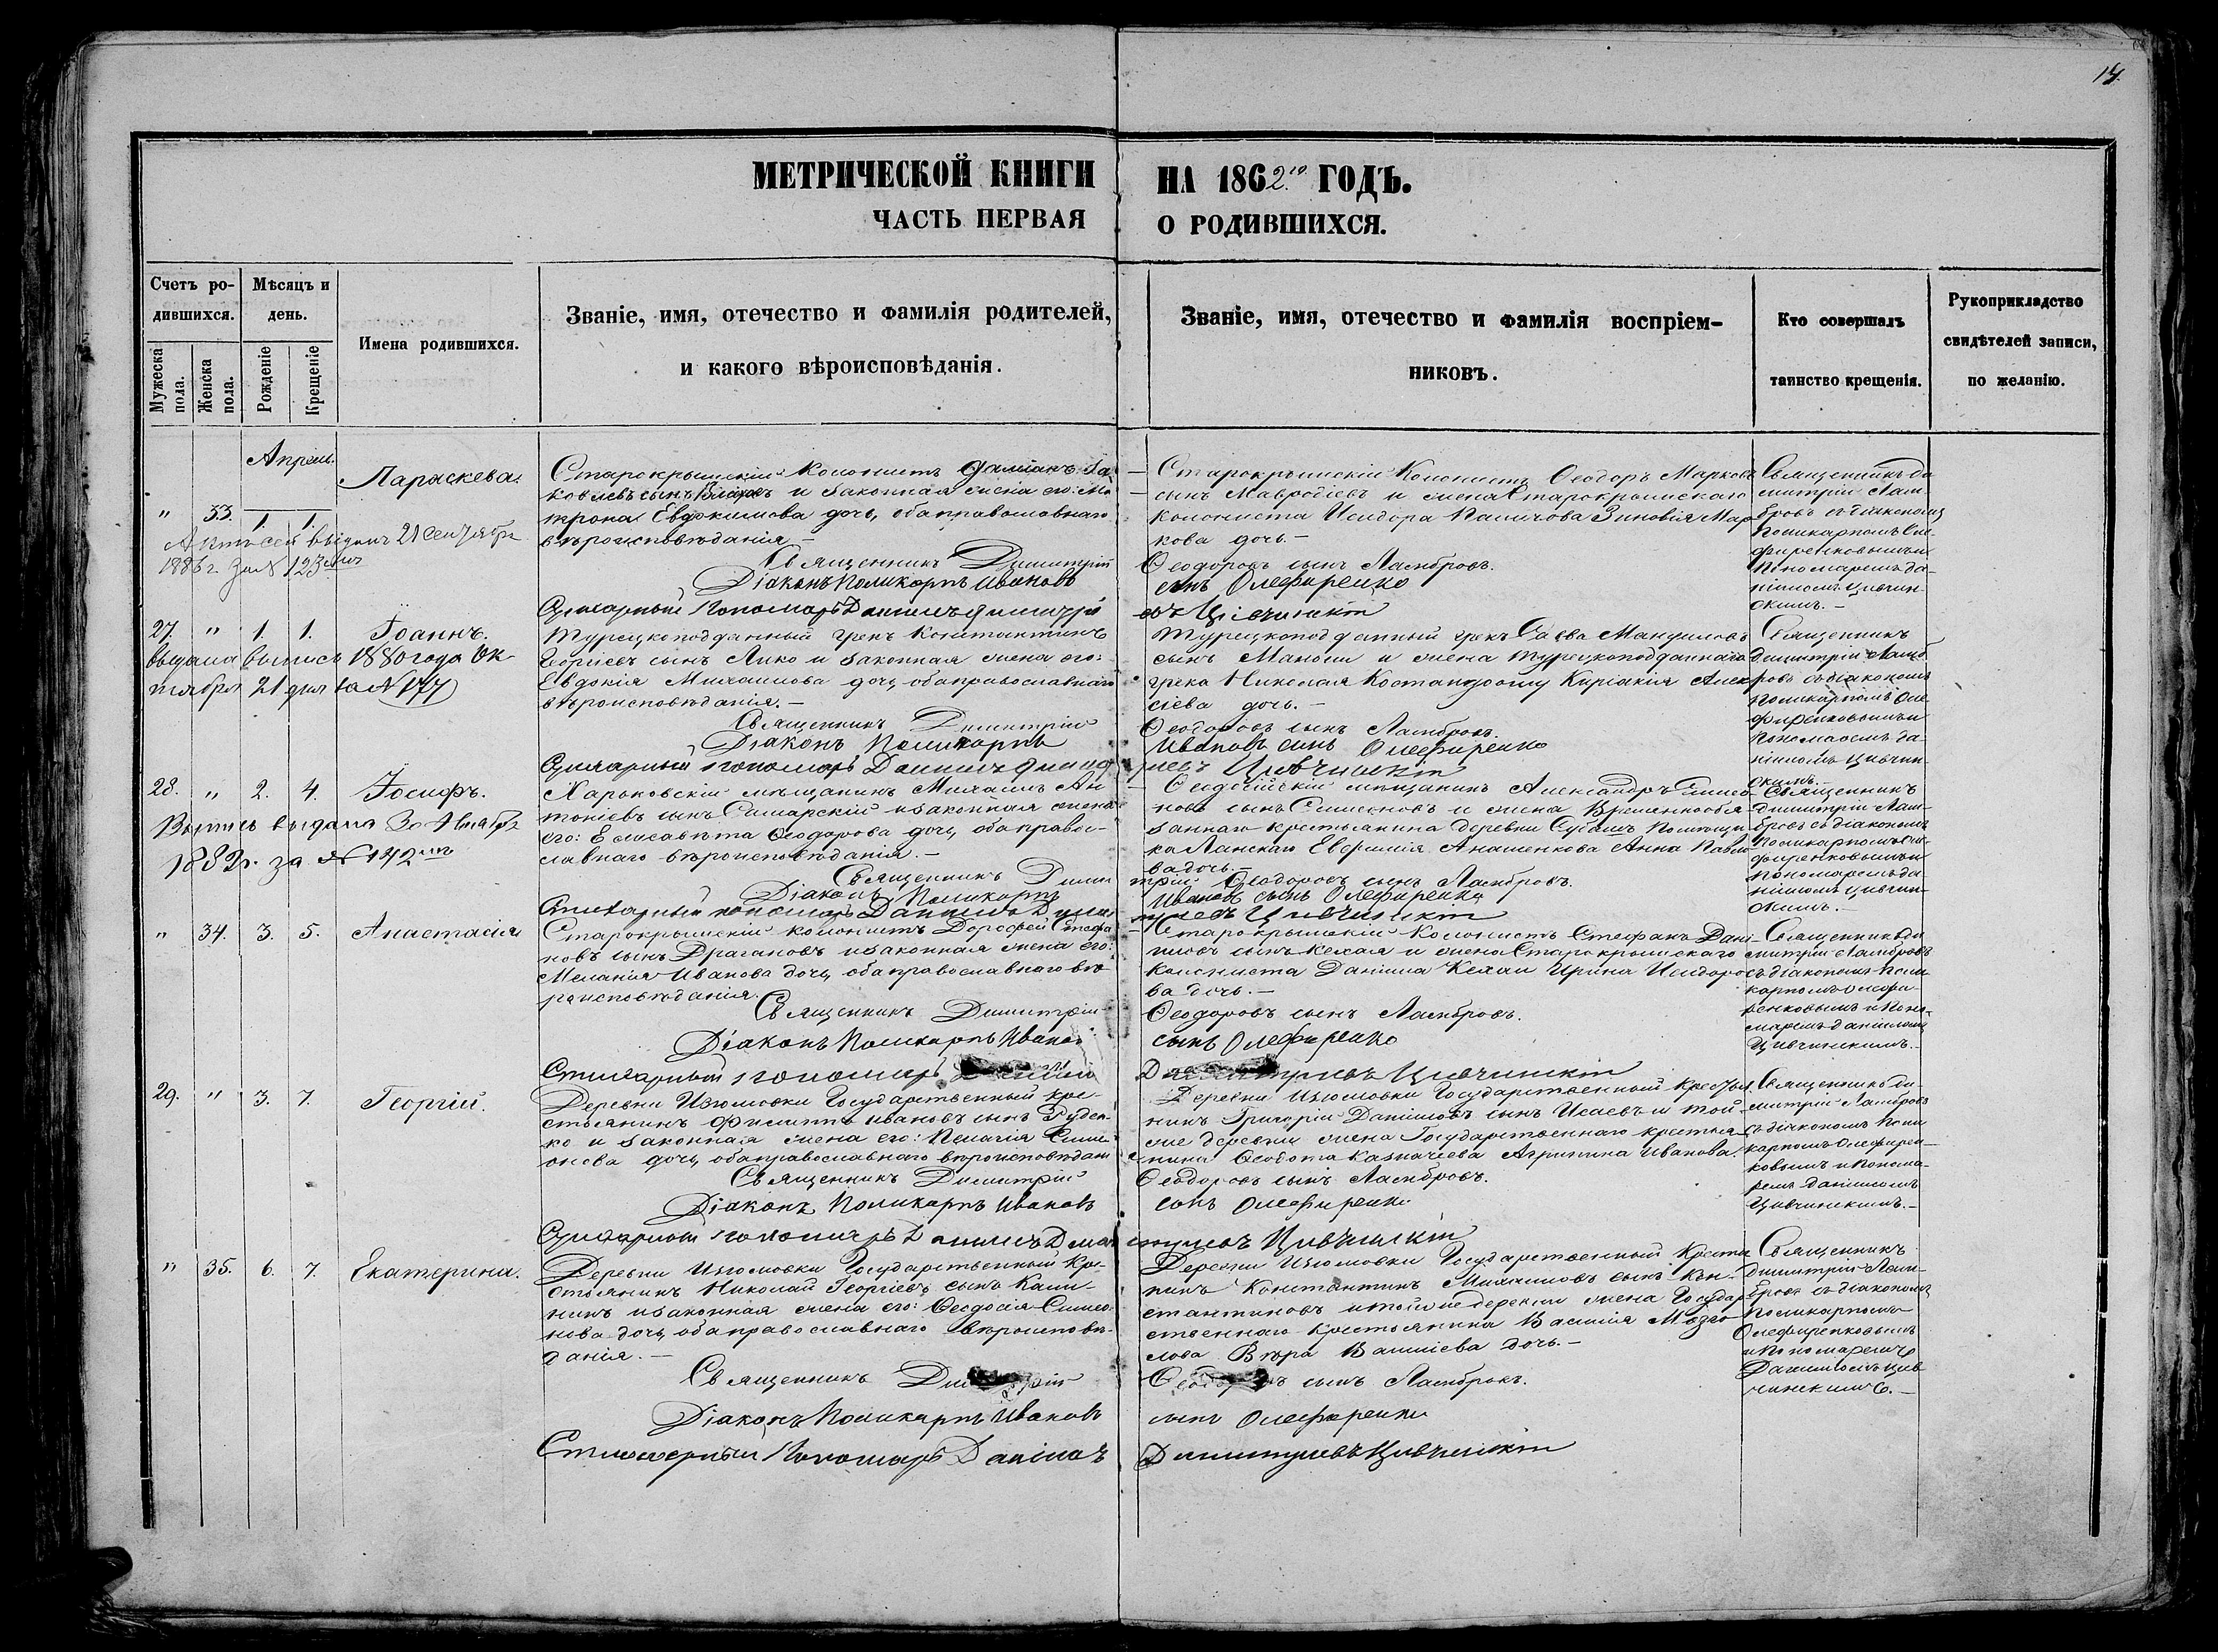 14.
МЕТРИЧЕСКОЙ КНИГИ НА 1862го ГОДЪ.
ЧАСТЬ ПЕРВАЯ О РОДИВШИХСЯ.
Счетъ ро-
дившихся.
Мужеска
пола.
Женска
пола.
Мѣсяцъ и
день.
Рожденіе
Крещеніе
Имена родившихся.
Званіе, имя, отечество и фамилія родителей,
и какого вѣроисповѣданія.
Званіе, имя, отечество и фамилія воспріем-
никовъ.
Кто совершалъ
таинство крещенія.
Рукоприкладство
свидѣтелей записи,
по желанію.
Апрель.
" 33. 1. 1. Параскева.
выданъ 21 Сентября
1886 г. за № 123
Старокрымскій Колонистъ Даміанъ Іа-
ковлевъ сынъ и законная жена его: Ма-
трона Евдокимова дочь, оба православнаго
вѣроисповѣданія –
Священникъ Димитрій
Діаконъ Поликарпъ Ивановъ
Стихарный Пономарь Даниилъ Димитрі
Старокрымскій Колонистъ Ѳеодоръ Марковъ
сынъ Мавродіевъ и жена Старокрымскаго
колониста Исидора Зиновія Мар-
кова дочь. –
Ѳеодоровъ сынъ Ламбровъ.
сынъ Олефиренко
евъ Цивчинскій
Священникъ Ди-
митрій Лам-
бровъ съ діакономъ
Поликарпомъ Оле-
фиренковымъ и
Пономаремъ Да-
ніиломъ Цивчин-
скимъ. –
27. " 1. 1. Іоаннъ.
Выдана выпись 1880 года Ок-
тября 21 дня за № 177
Турецкоподданный грекъ Константинъ
Георгіевъ сынъ Лико и законная жена его:
Евдокія Михаилова дочь, оба православнаго
вѣроисповѣданія. –
Священникъ Димитрій
Діаконъ Поликарпъ
Стихарный Пономарь Даниилъ Димит
Турецкоподданный грекъ Савва
сынъ и жена турецкоподданнаго
грека Николая Киріакія Алек-
сіева дочь. –
Ѳеодоровъ сынъ Ламбровъ.
Ивановъ сынъ Олефиренко
ріевъ Цивчинскій
Священникъ
Димитрій Ламб-
ровъ съ діакономъ
Поликарпомъ Оле-
фиренковымъ и
Пономаремъ Да-
ніиломъ Цивчин-
скимъ. –
28. " 2. 4. Іосифъ.
Выпись выдана 30 Ноября
1882 г. за № 142
Харьковскій мѣщанинъ Михаилъ Ан-
тоніевъ сынъ Самарскій и законная жена
его: Елисавета Ѳеодорова дочь, оба право-
славнаго вѣроисповѣданія. –
Священникъ Дими
Діаконъ Поликарпъ
Стихарный пономарь Даниилъ Дими
Ѳеодосійскій мѣщанинъ Александръ
новъ сынъ Симоновъ и жена Временнообя-
заннаго крестьянина деревни Субашъ Помѣщи-
ка Ланскаго Евфимія Анна Павло-
ва дочь. –
трій Ѳеодоровъ сынъ Ламбровъ.
Ивановъ сынъ Олефиренко
тріевъ Цивчинскій
Священникъ
Димитрій Лам-
бровъ съ діакономъ
Поликарпомъ Оле-
фиренковымъ и
Пономаремъ Да-
ніиломъ Цивчин-
скимъ. –
" 34. 3. 5. Анастасія
Старокрымскій колонистъ Дорофей Стефа-
новъ сынъ Драгановъ и законная жена его:
Меланія Иванова дочь, оба православнаго вѣ-
роисповѣданія.
Священникъ Димитрій
Діаконъ Поликарпъ Иванов
Стихарный Пономарь
Старокрымскій Колонистъ Стефанъ Дани-
иловъ сынъ Кехая и жена Старокрымскаго
колониста Даніила Кехаи Ирина Исидоро-
ва дочь. –
Ѳеодоровъ сынъ Ламбровъ.
сынъ Олефиренко
Цивчинскій
Священникъ Ди-
митрій Ламбровъ
съ діакономъ Поли-
карпомъ Олефи-
ренковымъ и Поно-
маремъ Даніиломъ
Цивчинскимъ. –
29. " 3. 7. Георгій.
Деревни Изюмовки Государственный кре-
стьянинъ Филиппъ Ивановъ сынъ Руден-
ко и законная жена его: Пелагія Симе-
онова дочь, оба православнаго вѣроисповѣдан
Священникъ Димитрій
Діаконъ Поликарпъ Ивановъ
Стихарный Пономарь Даниилъ Дими
Деревни Изюмовки Государственный Крестья-
нинъ Григорій Даніиловъ сынъ Исаевъ и той-
же деревни жена Государственнаго крестья-
нина Ѳеодота Казначеева Агрипина Иванова.
Ѳеодоровъ сынъ Ламбровъ.
сынъ Олефиренко
тріевъ Цивчинскій
Священникъ Ди-
митрій Ламбровъ
съ діакономъ Поли-
карпомъ Олефирен-
ковымъ и Понома-
ремъ Даніиломъ
Цивчинскимъ. –
" 35. 6. 7. Екатерина.
Деревни Изюмовки Государственный Кре-
стьянинъ Николай Георгіевъ сынъ Кали-
нинъ и законная жена его: Ѳеодосія Симео-
нова дочь, оба православнаго вѣроисповѣ-
данія. –
Священникъ
Діаконъ Поликарпъ Ивановъ
Стихарный Пономарь Даніилъ
Деревни Изюмовки Государственный Крестья
нинъ Константинъ Михаиловъ сынъ Кон-
стантиновъ и той же деревни жена Государ-
ственнаго крестьянина Василія
Вѣра Василіева дочь. –
сынъ Ламбровъ.
сынъ Олефиренко
Димитріевъ Цивчинскій
Священникъ
Димитрій Лам-
бровъ съ діакономъ
Поликарпомъ
Олефиренковымъ
и Пономаремъ
Даніиломъ Цив-
чинскимъ. –